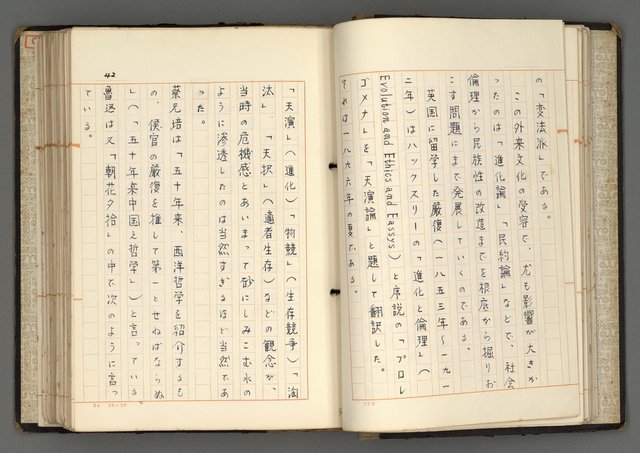 の「変法派」である。
この外来文化の受容で、尤も影響が大きか
ったのは「進化論」「民約論」などで、社会
倫理から民族性の改造までを根底から掘りお
こす問題にまで発展していくのである。
英国に留学した厳復（一八五三年〜一九一
二年）はハックスリーの「進化と倫理」（
Evolution and Ethics and Eassys）と序説の「プロレ
ゴメナ」を「天演論」と題して翻訳した。
それは一八九六年の夏である。
42
「天演」（進化）「物競」（生存競争）「淘
汰」、「天択」（適者生存）などの観念が、
当時の危機感とあいまって砂にしみこむ水の
ように滲透したのは当然すぎるほど当然であ
った。
蔡元培は「五十年来、西洋哲学を紹介するも
の、侯官の厳復を推して第一とせねばならぬ
」（「五十年来中国之哲学」）と言っている。
魯迅は又「朝花夕拾」の中で次のように言っ
ている。